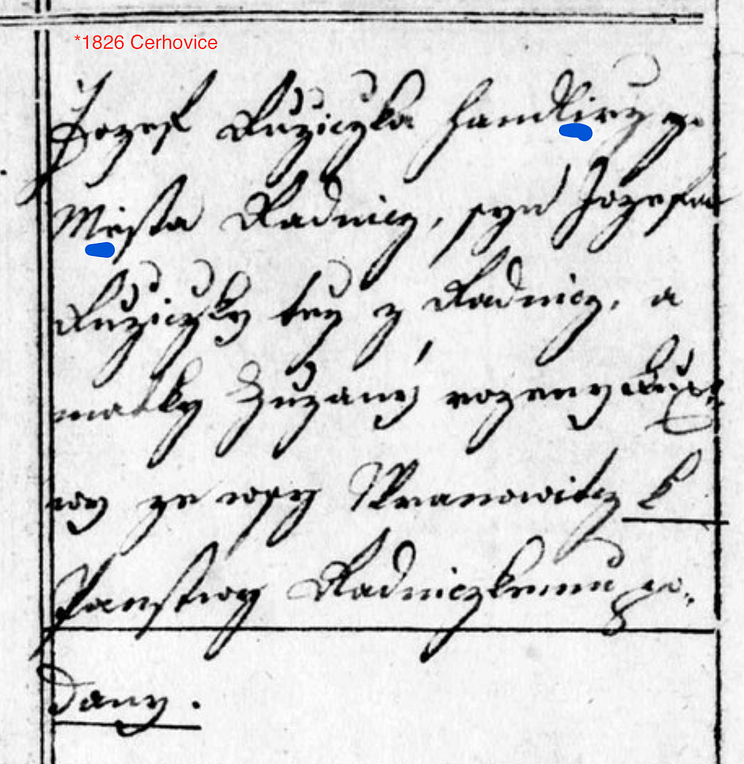 *1826 Cerhovice
Jozef Ruziczka handlirz ze
Mesta Radnicz, syn Jozefa
Ruziczky tey z Radnicz, a
matky Zuzany rozeny
wy ze wsy Wranowitz k
Panstwy Radniczkemu po-
dany.